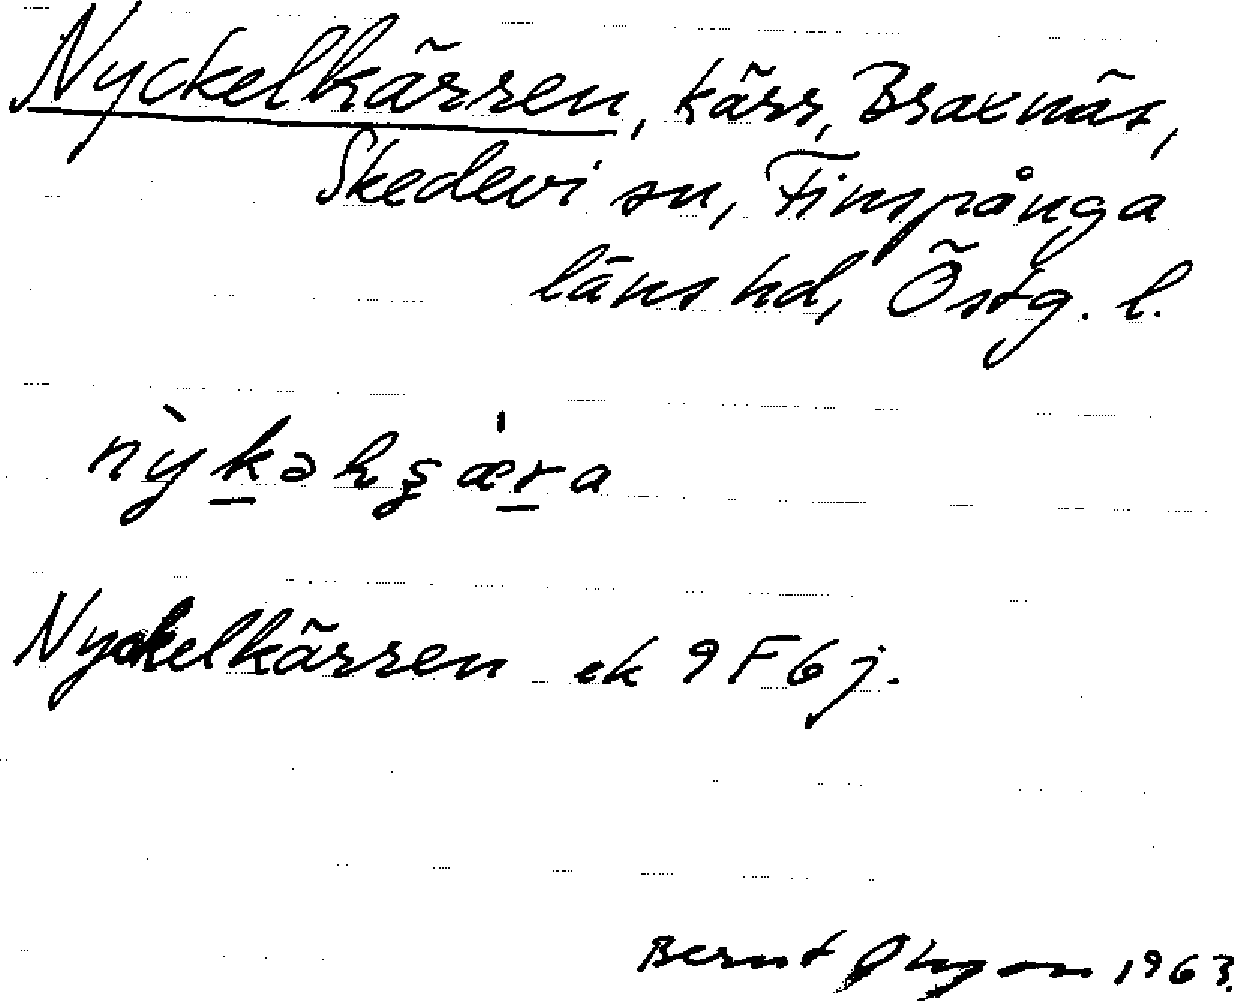 Nyckelkärren, kärr, Braxnäs,
Skedevi sn, Finspånga
läns hd, Östg. l.
Nyckelkärren ek 9F6j.
Bernt 1963.